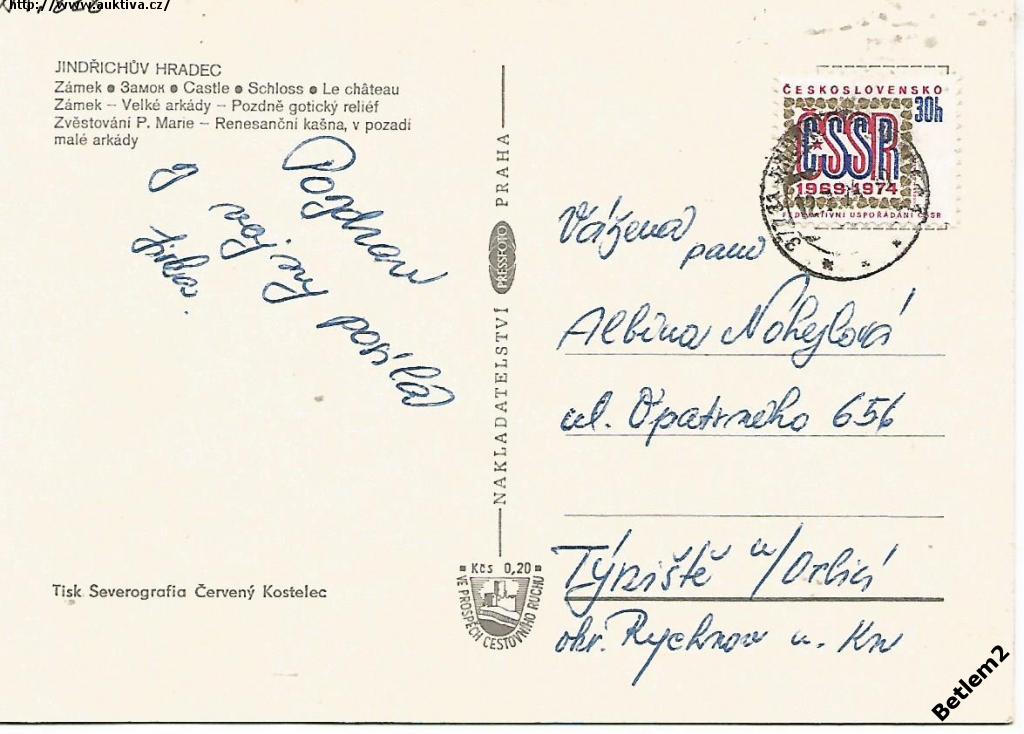 http://www.auktiva.cz/
JINDŘICHŮV HRADEC
Zámek • Замок • Castle • Schloss • Le château
Zámek – Velké arkády – Pozdně gotický reliéf
Zvěstování P. Marie – Renesanční kašna, v pozadí
malé arkády
Pozdrav
z vojny posílá
Jirka.
Tisk Severografia Červený Kostelec
NAKLADATELSTVÍ PRESSFOTO PRAHA
Kčs 0,20
VE PROSPĚCH CESTOVNÍHO RUCHU
ČESKOSLOVENSKO
30h
ČSSR
1969 1974
FEDERATIVNÍ USPOŘÁDÁNÍ ČSSR
Vážená
paní
Albina Nohejlová
ul. Opatrného 656
Týniště n/Orlicí
okr. Rychnov n. Kn
Betlem2